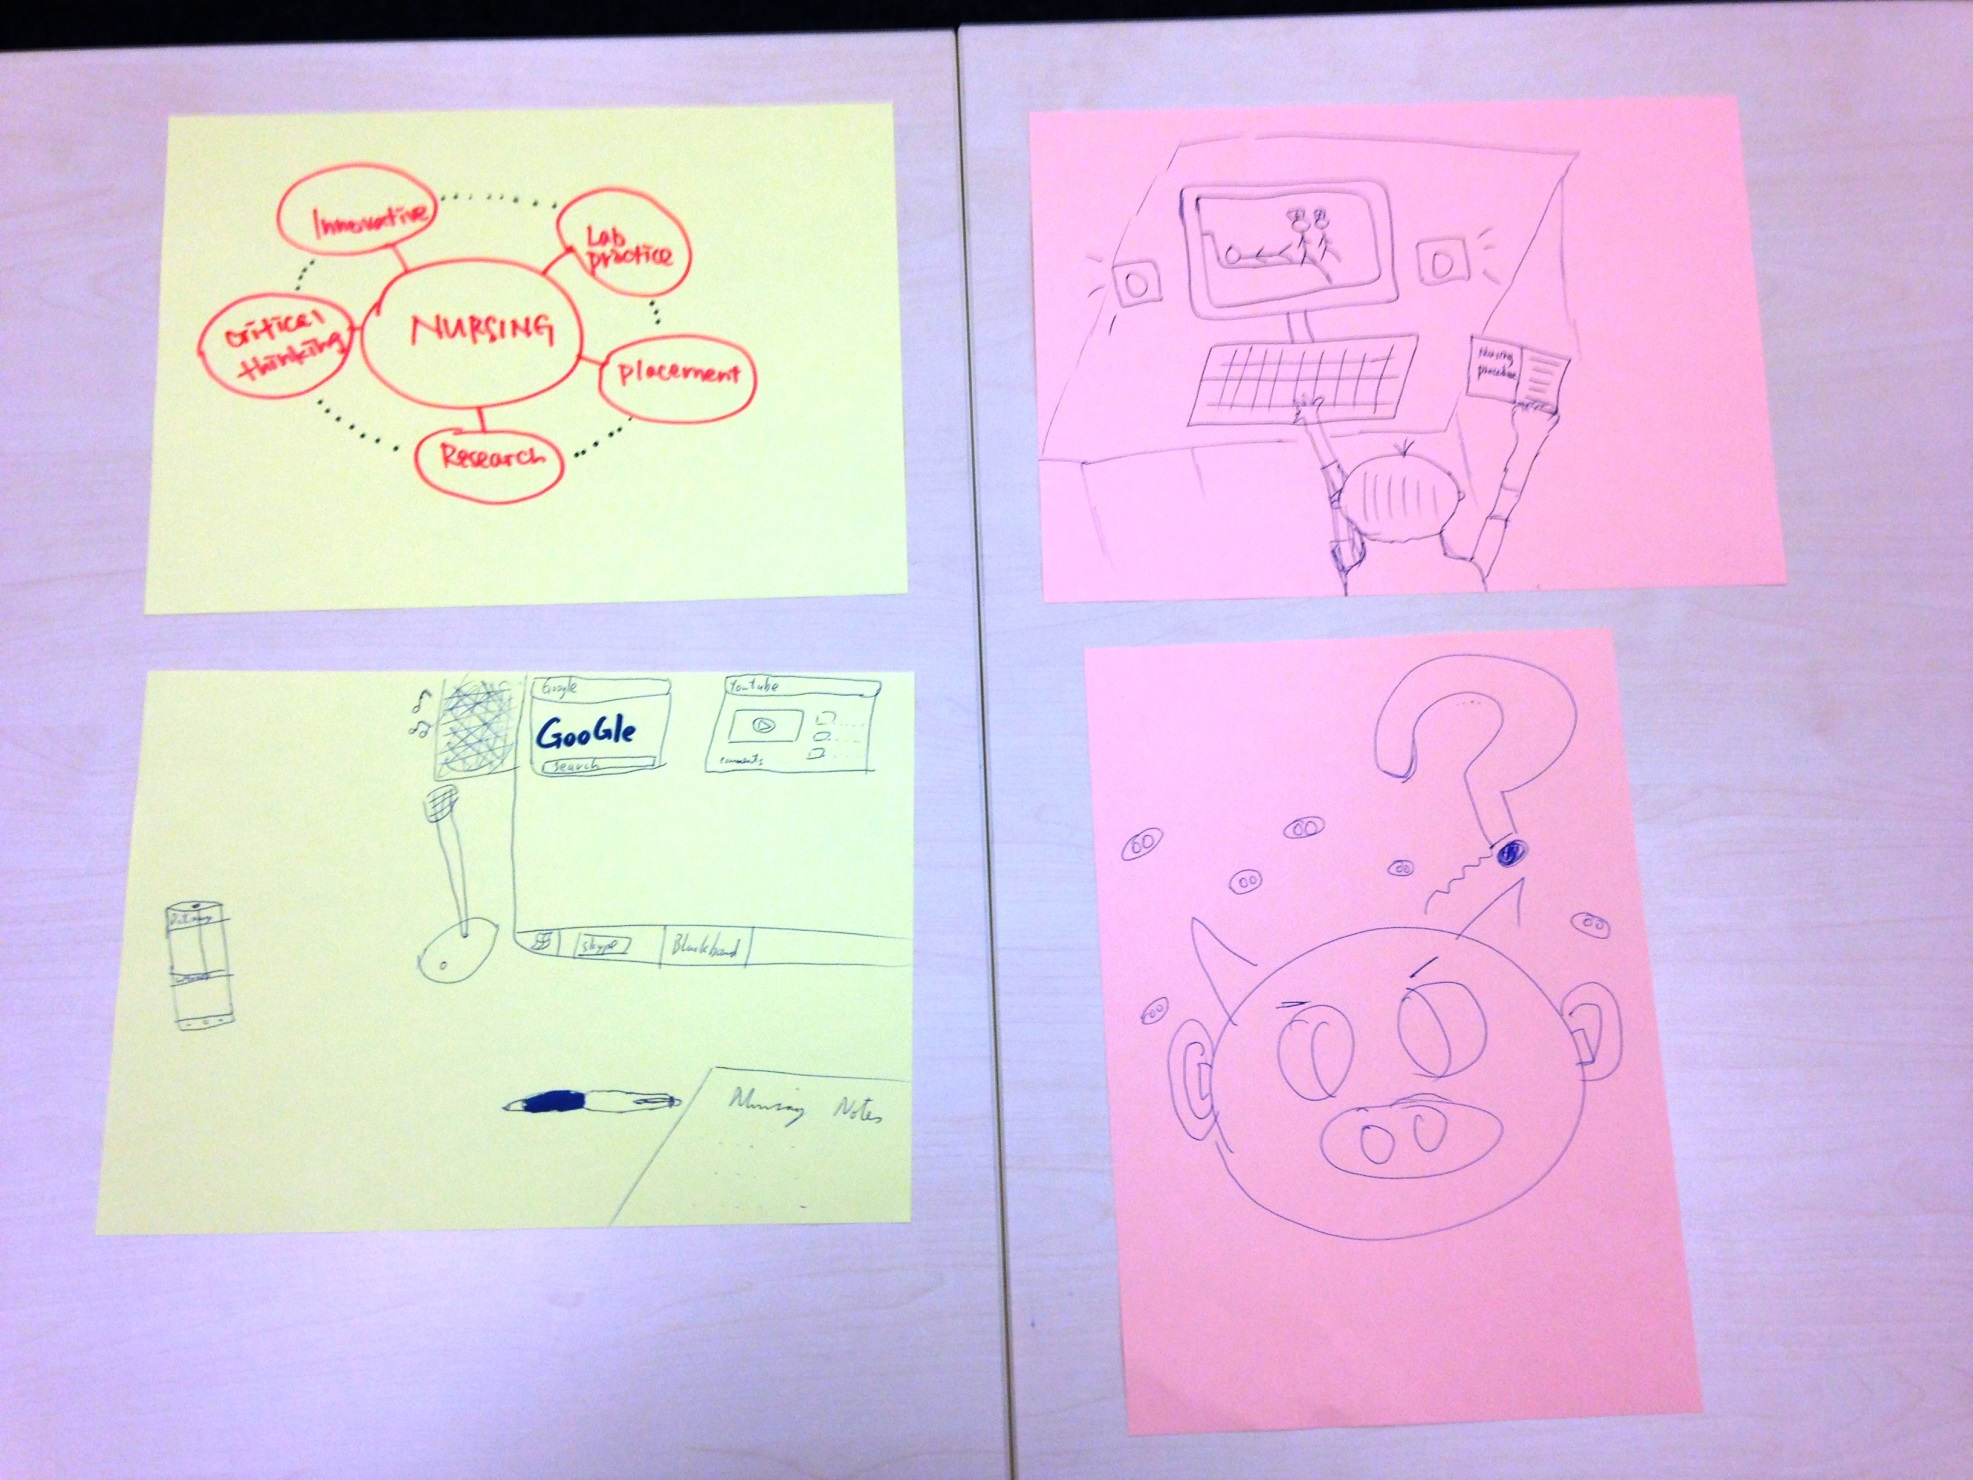 Innovative
Lab
practice
critical
thinking
NURSING
placement
Research
Nursing
procedure
Google
GooGle
Search
YouTube
comments
skype
Blackboard
Nursing Notes